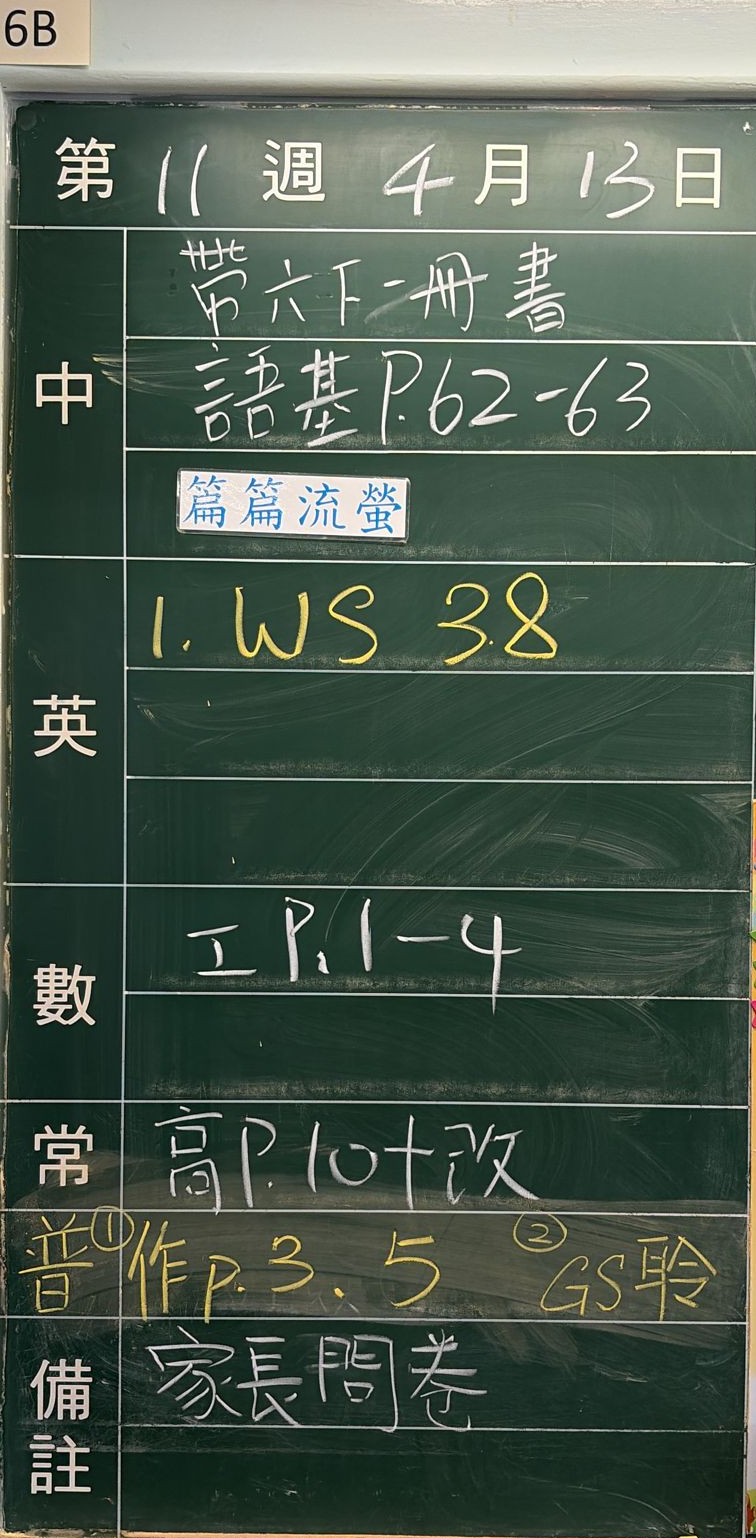 6B
第 11 週 4 月 13 日
中
帶六下一冊書
語基P.62-63
篇篇流螢
英
1. WS 3.8
數
工 P.1-4
常
高P.10+改
普 ①作p.3、5 ②GS聆
備註
家長問卷